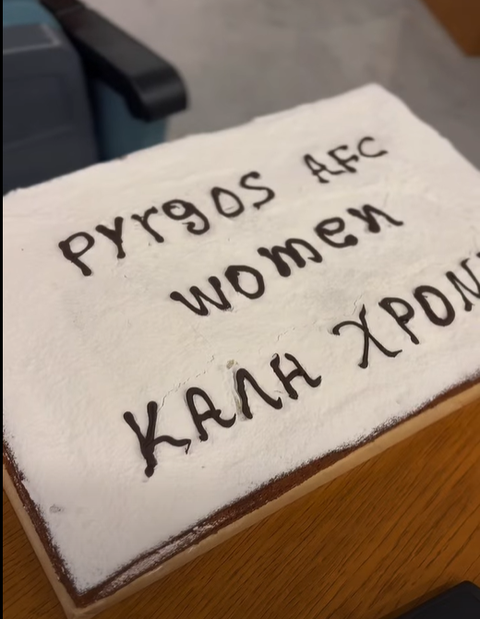 Pyrgos AFC
women
ΚΑΛΗ ΧΡΟΝ